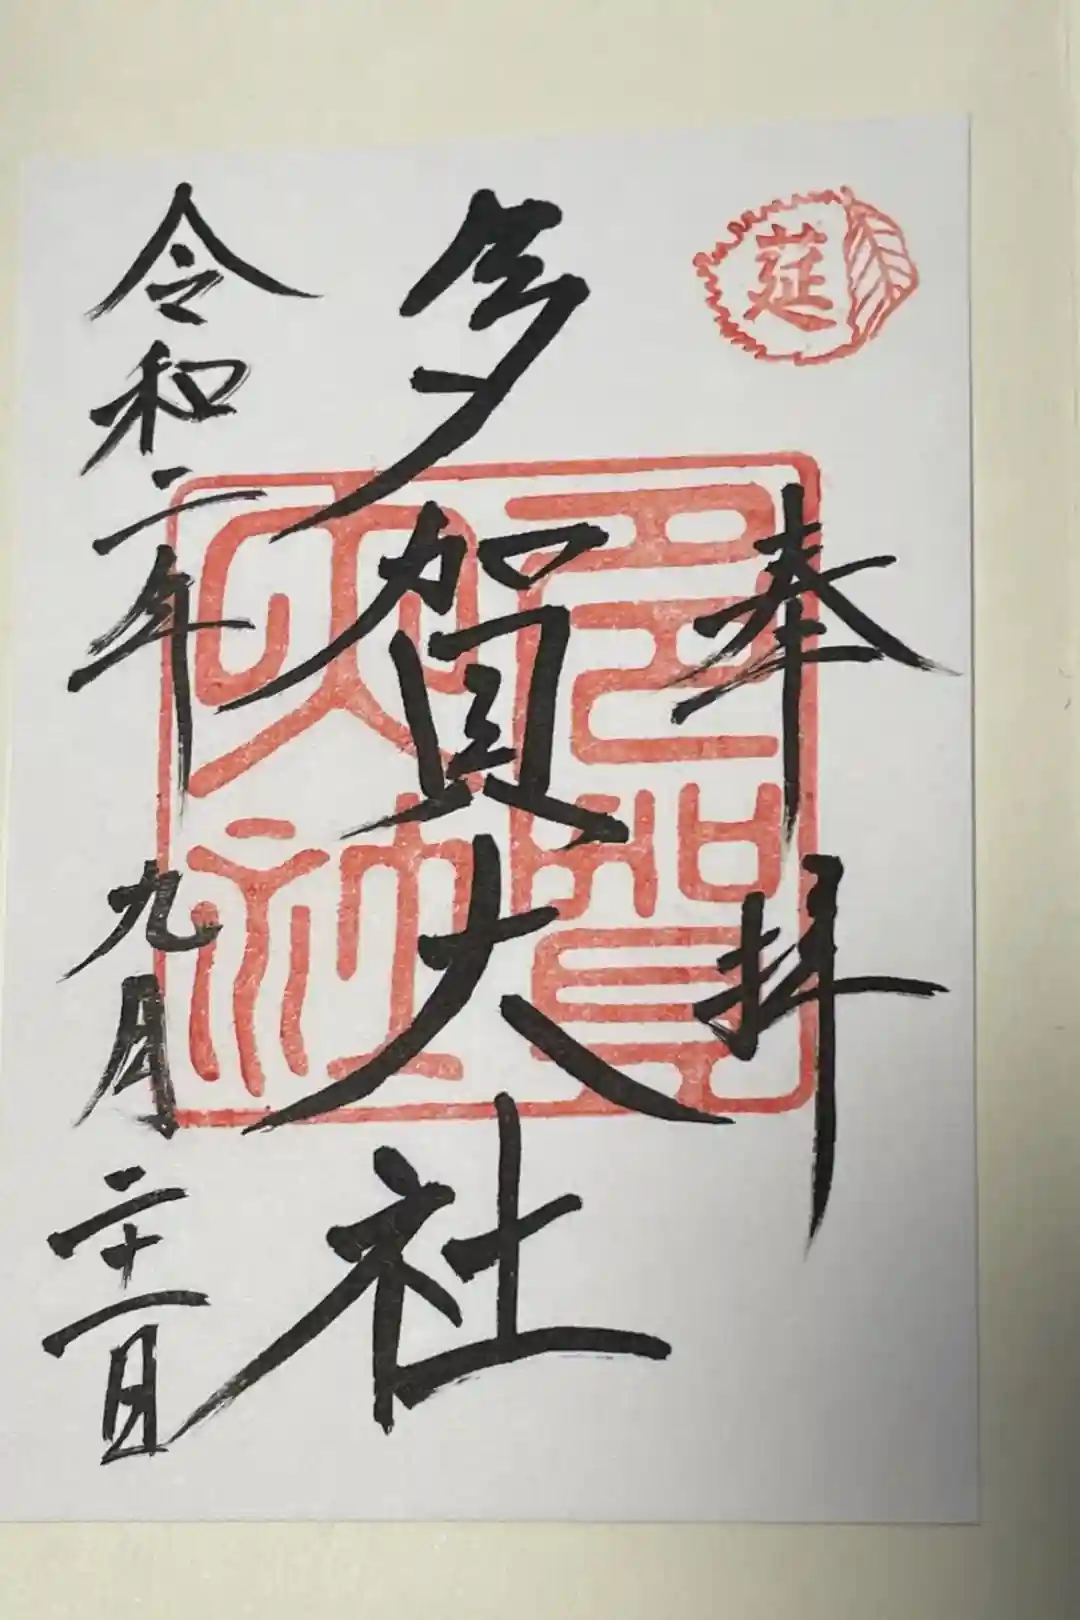 莚
奉拝
多賀大社
多賀大社
令和二年九月二十一日